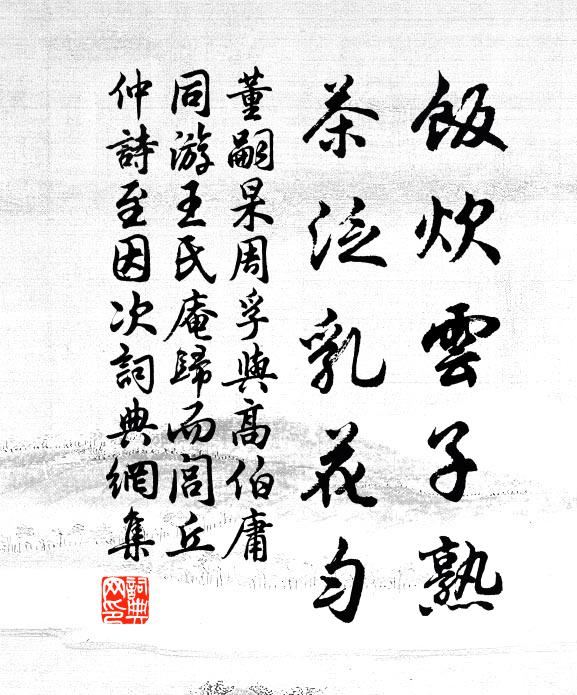 飯炊雲子熟
茶泛乳花勻
董嗣杲周孚與高伯庸
同游王氏庵歸而閭丘
仲詩至因次詞典網集
詞典
网印